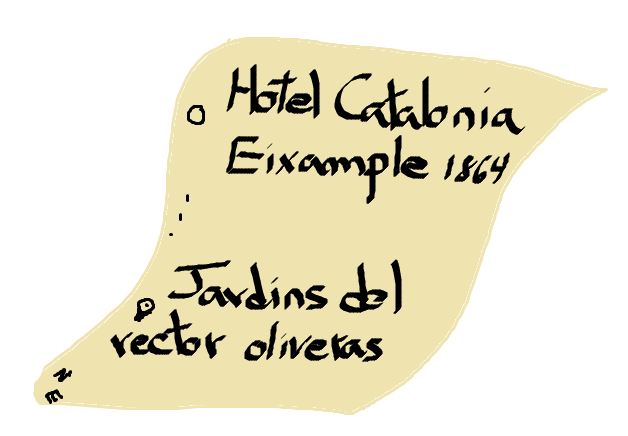 Hotel Catalonia
Eixample 1864
Jardins del
rector oliveras
N
E